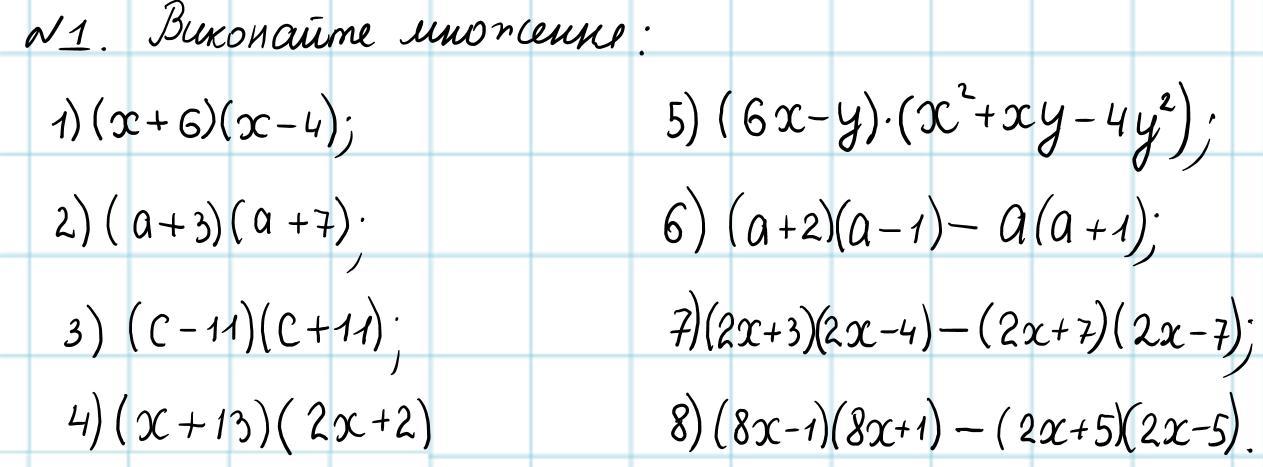 №1. Виконайте множення:
1) (x+6)(x-4);
2) (a+3)(a+7);
3) (c-11)(c+11);
4) (x+13)(2x+2)
5) (6x-y)·(x²+xy-4y²);
6) (a+2)(a-1)-a(a+1);
7) (2x+3)(2x-4)-(2x+7)(2x-7);
8) (8x-1)(8x+1)-(2x+5)(2x-5).